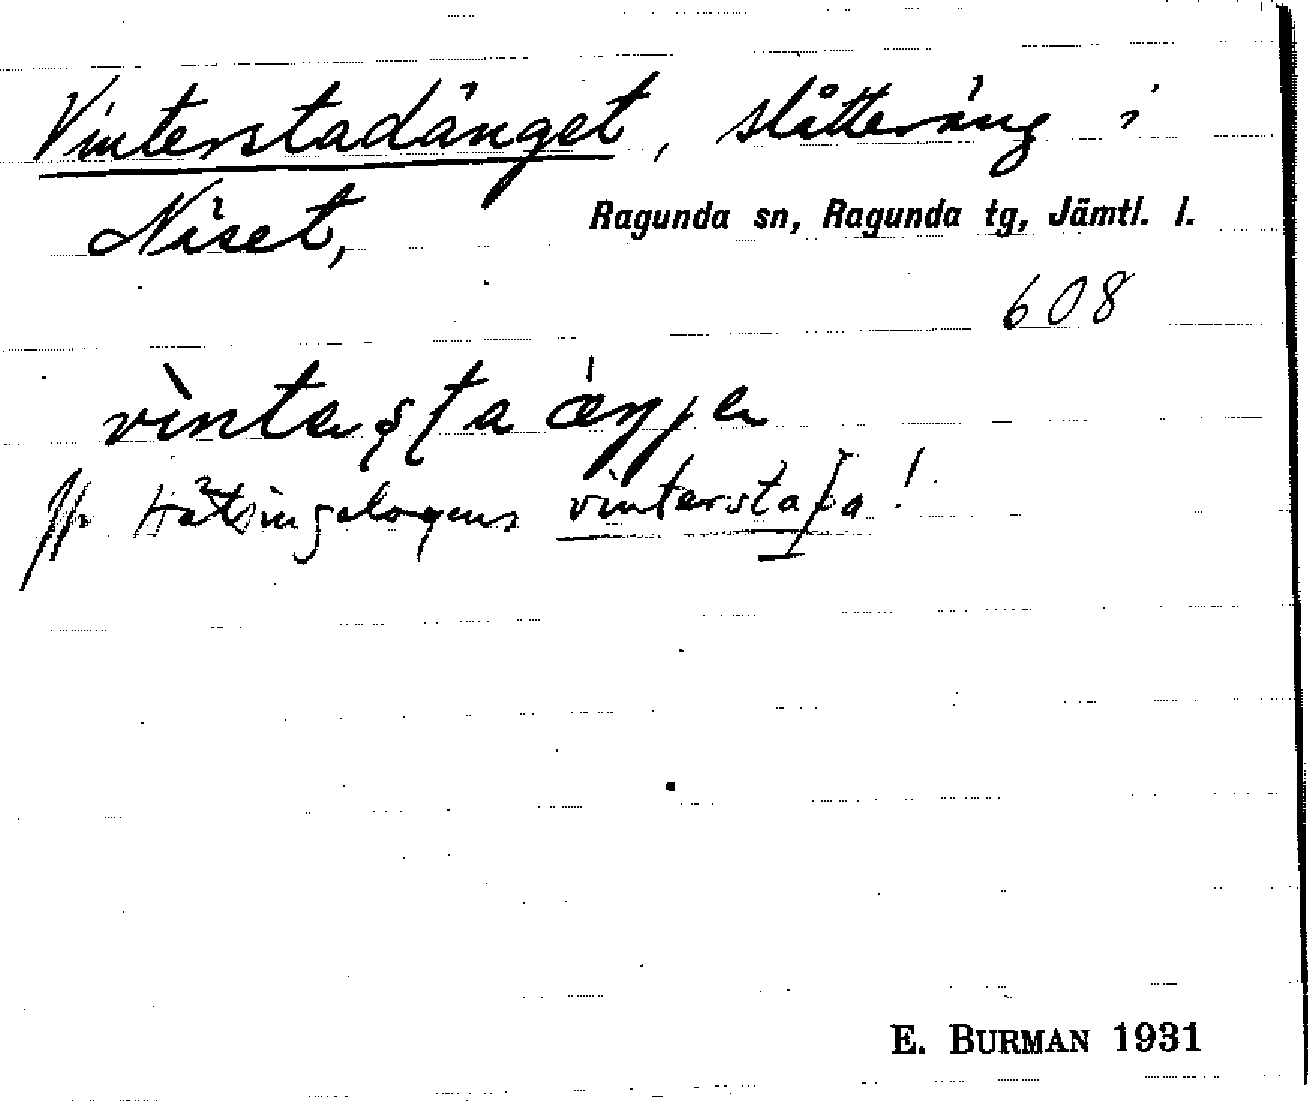 Vinterstadänget, slåtteräng i
Näset,
Ragunda sn, Ragunda tg, Jämtl. l.
608
vìntaʂʈa æŋ́ŋa
Jfr Hälsingelagens vinterstaþa!
E. BURMAN 1931